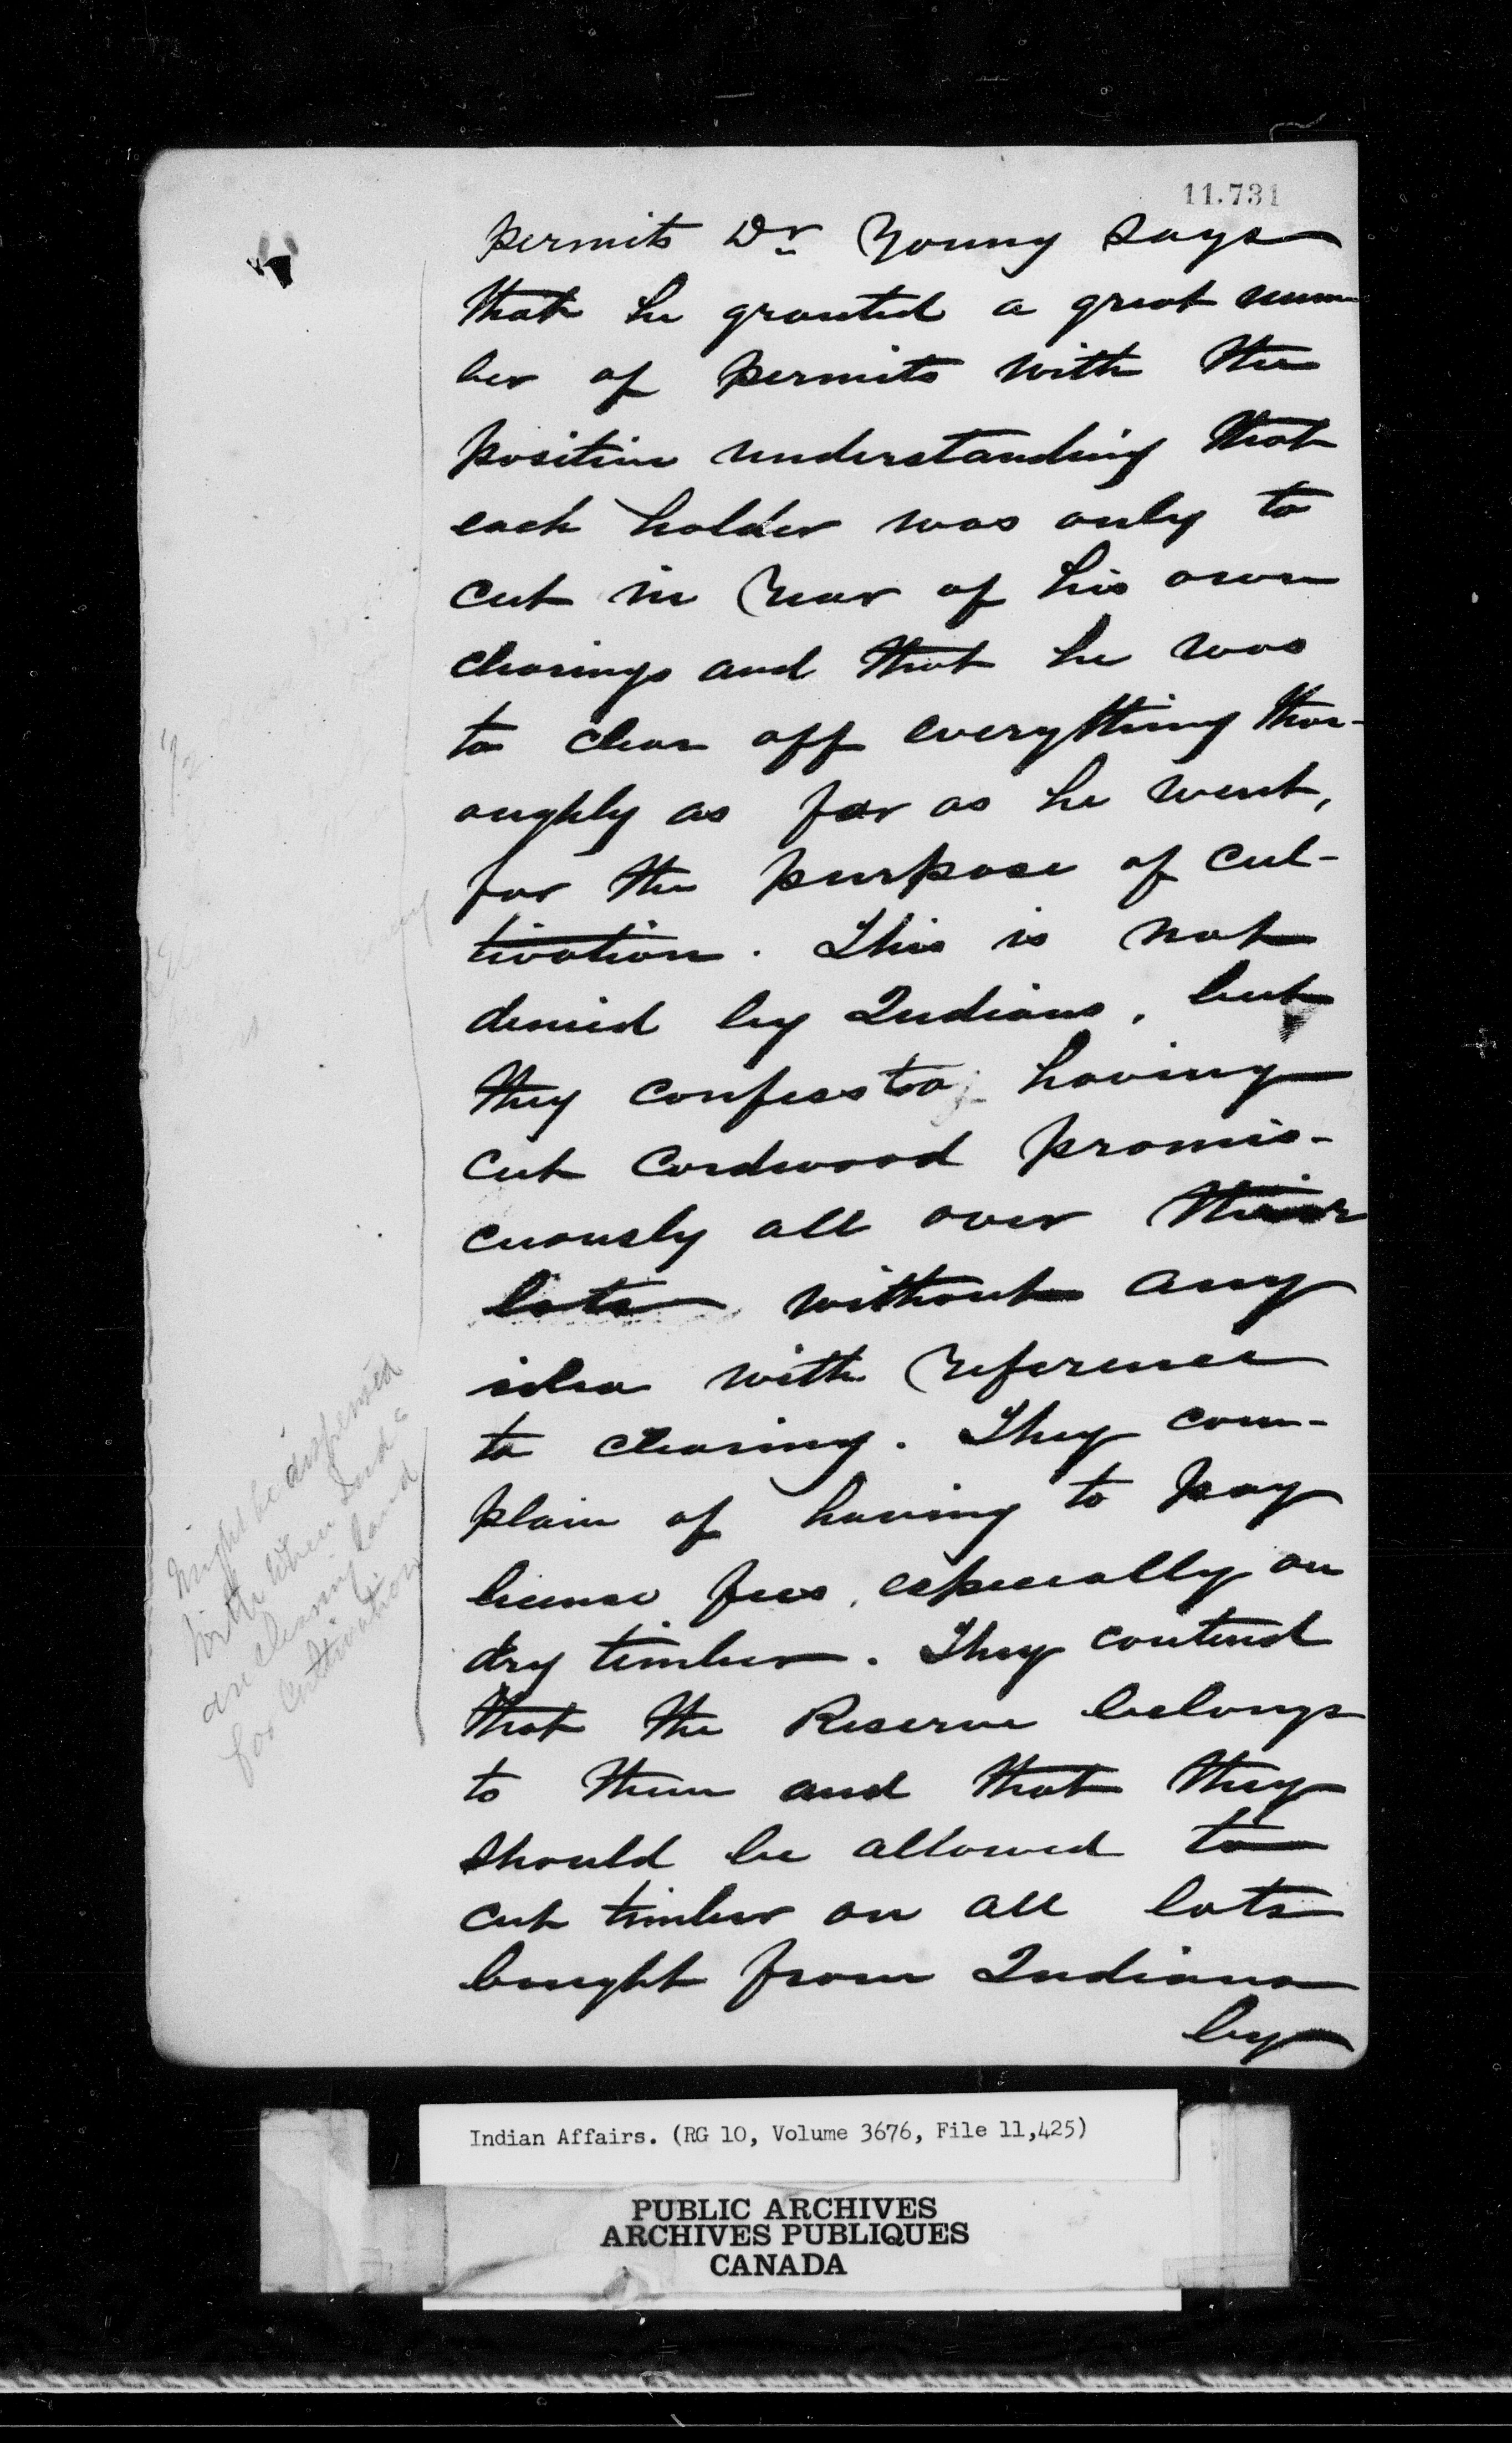 11.731
permits Dr Young says
that he granted a great num
ber of permits with the
positive understanding that
each holder was only to
cut in rear of his own
clearings and that he was
to clear off everything thor-
oughly as far as he went,
for the purpose of cul-
tivation. This is not
denied by Indians, but
they confess to having
cut cordwood promis-
cuously all over their
lots without any
idea with reference
to clearing. They com-
plain of having to pay
license fees, especially on
dry timber. They contend
that the Reserve belongs
to them and that they
should be allowed to
cut timber on all lots
bought from Indians
by
might be dispensed
with when Inds
are clearing land
for cultivation
Indian Affairs. (RG 10, Volume 3676, File 11,425)
PUBLIC ARCHIVES
ARCHIVES PUBLIQUES
CANADA